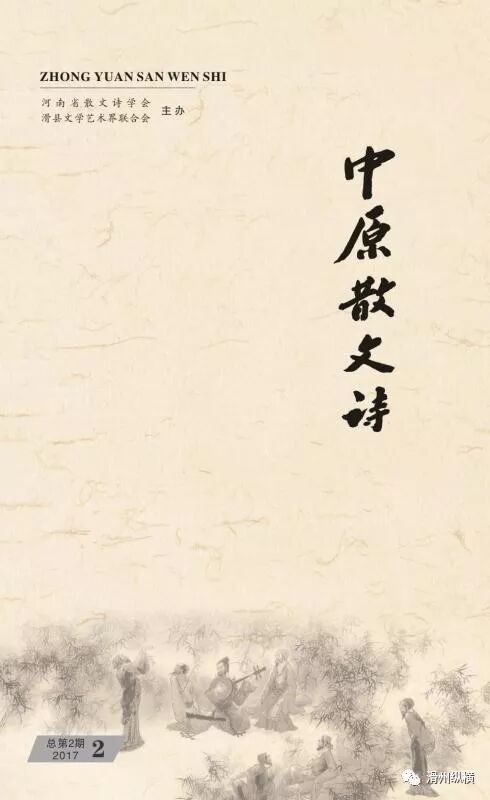 ZHONG YUAN SAN WEN SHI
河南省散文诗学会
滑县文学艺术界联合会
主办
中原散文诗
总第2期
2017
2
滑州纵横